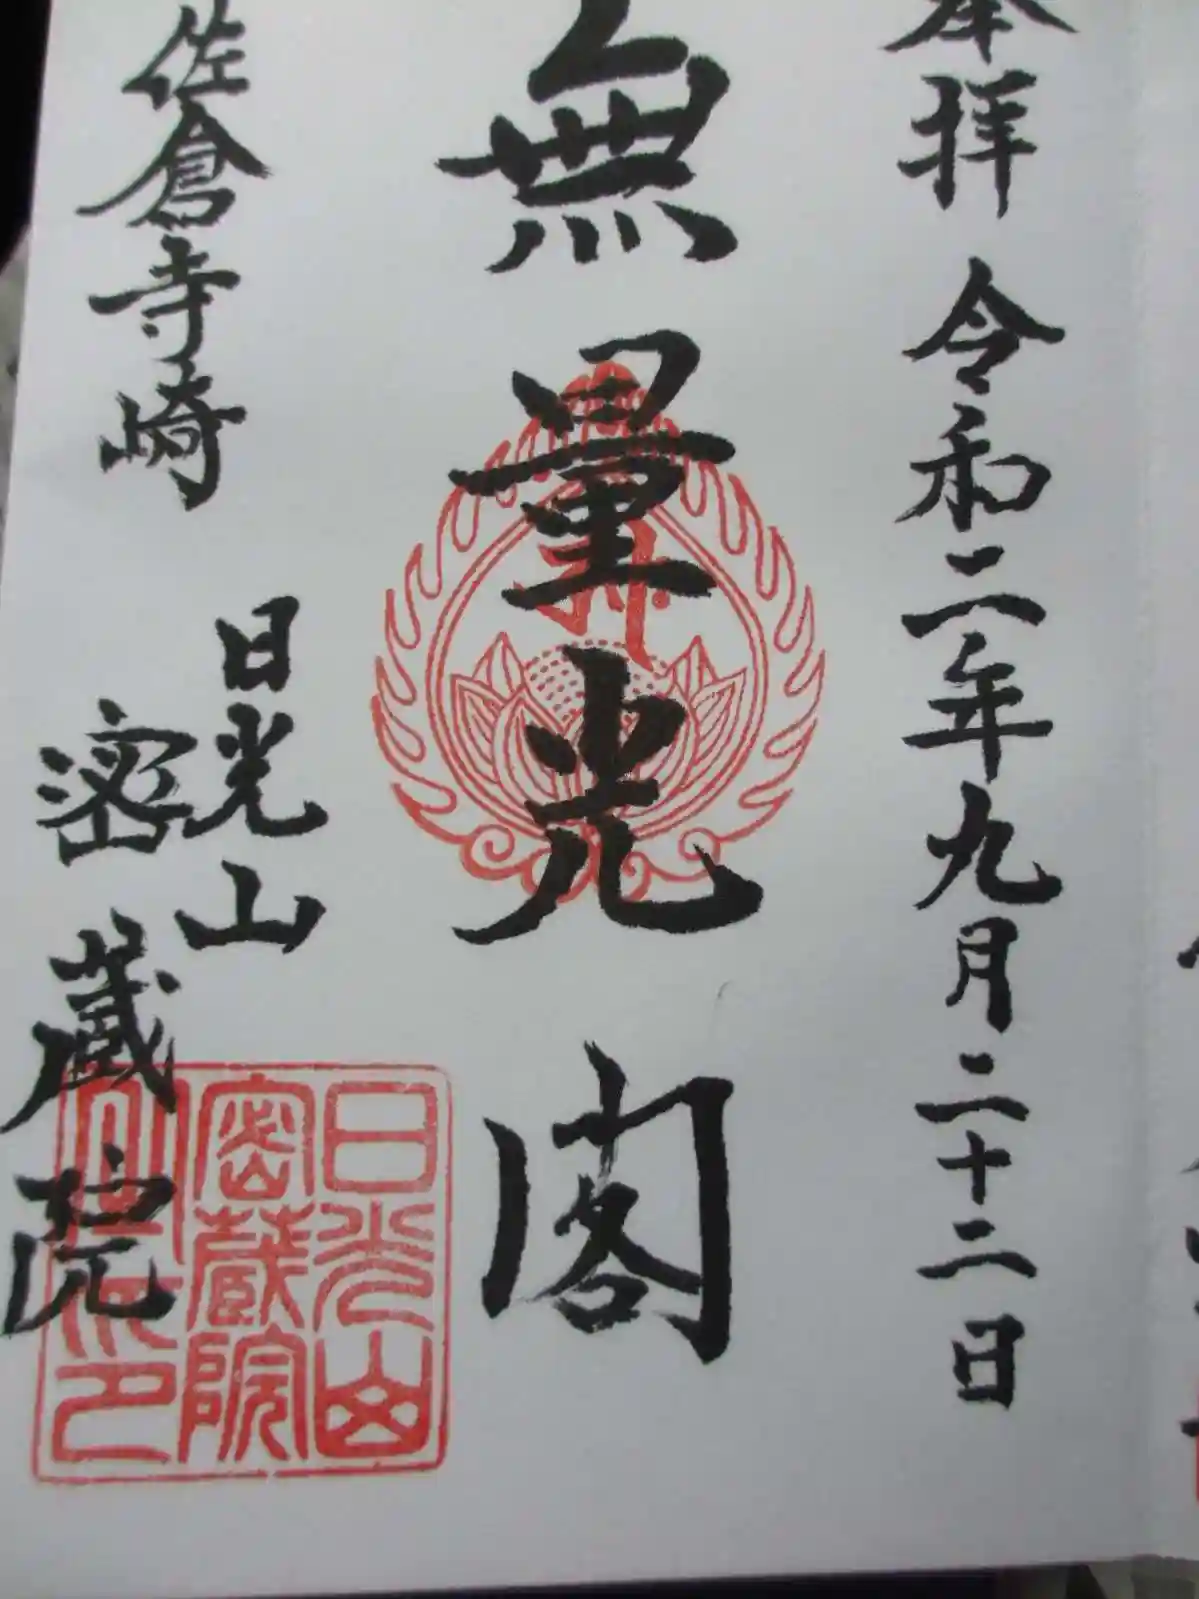 奉拝 令和二年九月二十二日
無量光閣
佐倉寺崎
日光山
密蔵院
日光山
密蔵院